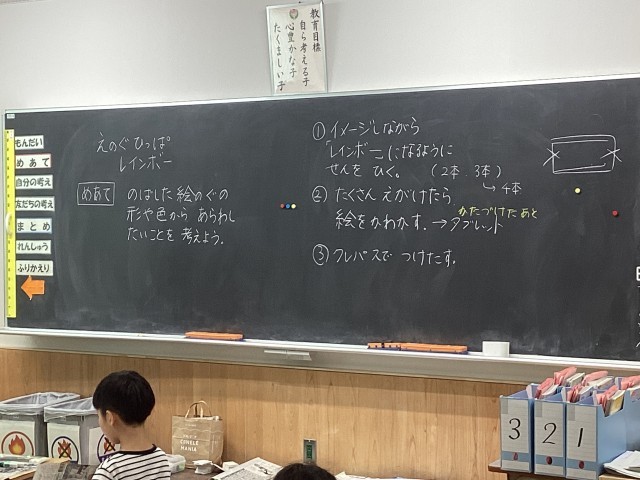 教育目標
自ら考える子
心豊かな子
たくましい子
もんだい
めあて
自分の考え
友だちの考え
まとめ
れんしゅう
ふりかえり
えのぐひっぱ
レインボー
めあて
のばした絵のぐの
形や色から あらわし
たいことを 考えよう。
① イメージしながら
「レインボー」になるように
せんを ひく。 (2本.3本)
↳ 4本
② たくさん えがけたら
絵をかわかす。→タブレット
かたづけたあと
③ クレパスで つけたす。
3
2
1